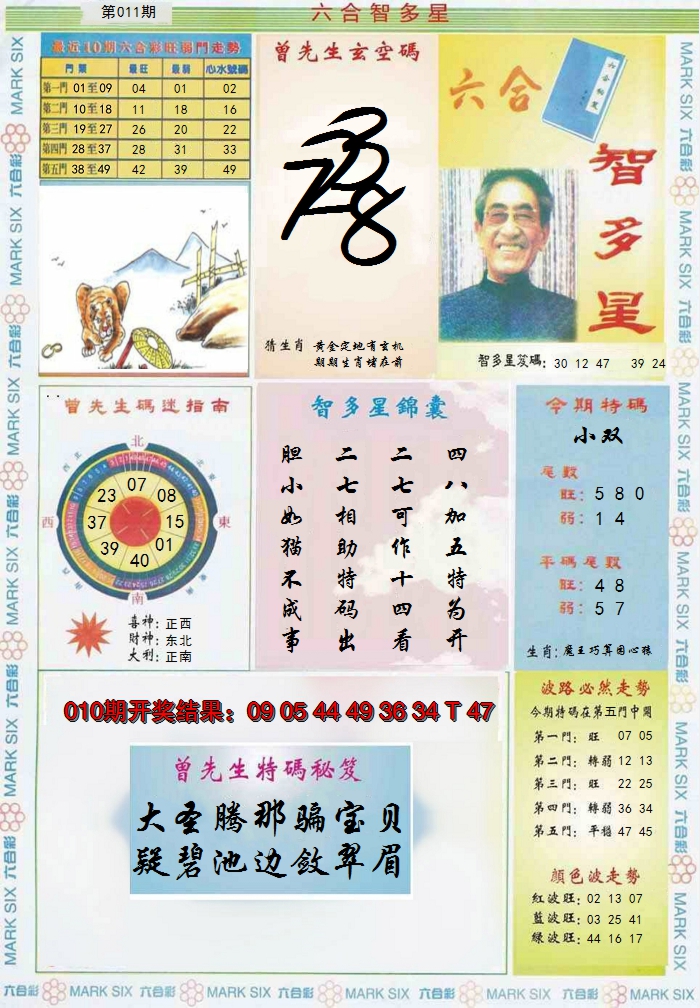 第011期
六合智多星
最近10期六合彩旺弱門走勢
門類 最旺 最弱 心水號碼
第一門 01至09 04 01 02
第二門 10至18 11 18 16
第三門 19至27 26 20 22
第四門 28至37 28 31 33
第五門 38至49 42 39 49
曾先生玄空碼
猜生肖 黄金定地有玄机
期期生肖堵在前
六合
智多星
智多星笈碼: 30 12 47 39 24
曾先生碼迷指南
北
西
東
南
07
08
15
01
40
39
37
23
喜神: 正西
财神: 东北
大利: 正南
智多星錦囊
四八加五特为开
二七可作十四看
二七相助特码出
胆小如猫不成事
今期特碼
小双
尾數
旺: 5 8 0
弱: 1 4
平碼尾數
旺: 4 8
弱: 5 7
生肖: 魔王巧算困心猿
010期开奖结果: 09 05 44 49 36 34 T 47
曾先生特碼秘笈
大圣腾那骗宝贝
疑碧池边敛翠眉
波路必然走勢
今期特碼在第五門中開
第一門: 旺 07 05
第二門: 轉弱 12 13
第三門: 旺 22 25
第四門: 轉弱 36 34
第五門: 平穩 47 45
顏色波走勢
紅波旺: 02 13 07
藍波旺: 03 25 41
綠波旺: 44 16 17
MARK SIX 六合彩